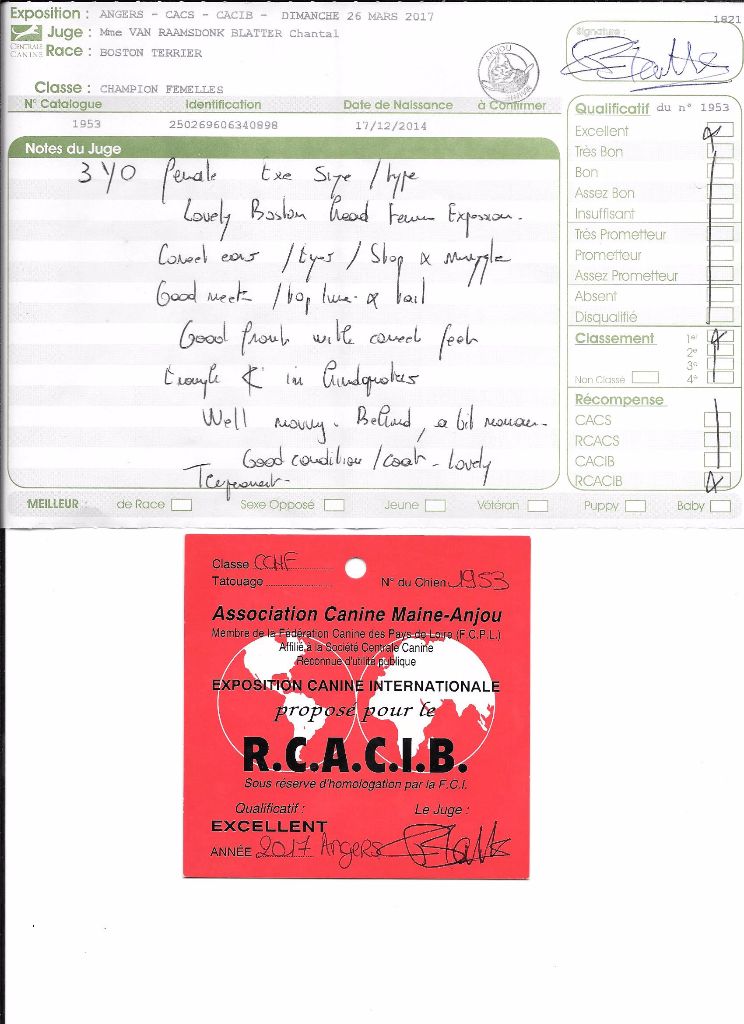 Exposition : ANGERS - CACS - CACIB - DIMANCHE 26 MARS 2017
1821
Juge : Mme VAN RAAMSDONK BLATTER Chantal
CENTRALE CANINE
Race : BOSTON TERRIER
Signature :
Classe : CHAMPION FEMELLES
N° Catalogue Identification Date de Naissance à Confirmer
1953 250269606340898 17/12/2014
Notes du Juge
3 YO female Exe Size / type
Lovely Boston Head Femin Expression.
Correct ears / Eyes / Stop & muzzle
Good neck / top line & tail
Good front with correct feet
Enough < in Hindquarters
Well moving. Behind, a bit narrow.
Good condition / coat - lovely
Temperament.
Qualificatif du n° 1953
Excellent
Très Bon
Bon
Assez Bon
Insuffisant
Très Prometteur
Prometteur
Assez Prometteur
Absent
Disqualifié
Classement 1er
2e
3e
Non Classé 4e
Récompense
CACS
RCACS
CACIB
RCACIB
MEILLEUR : de Race Sexe Opposé Jeune Vétéran Puppy Baby
Classe CCHF
Tatouage N° du Chien 1953
Association Canine Maine-Anjou
Membre de la Fédération Canine des Pays de Loire (F.C.P.L.)
Affilié à la Société Centrale Canine
Reconnue d'utilité publique
EXPOSITION CANINE INTERNATIONALE
proposé pour le
R.C.A.C.I.B.
Sous réserve d'homologation par la F.C.I.
Qualificatif : Le Juge :
EXCELLENT
ANNÉE 2017 Angers